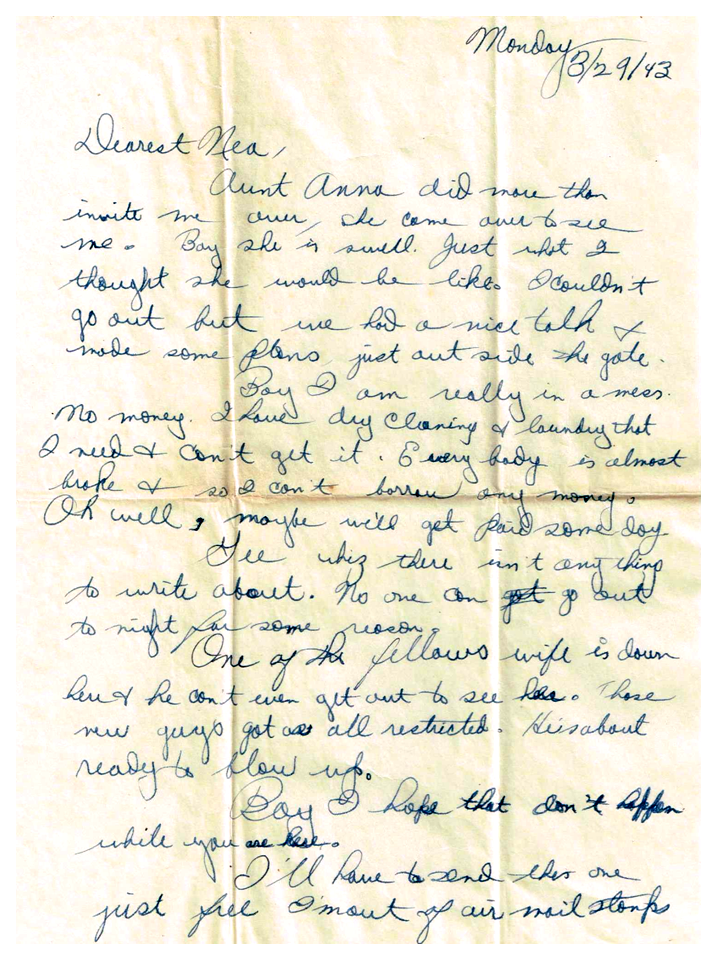 Monday
3/29/43
Dearest Nea,
Aunt Anna did more than
invite me over, she come over to see
me. Boy she is swell. Just what I
thought she would be like. I couldn't
go out but we had a nice talk &
made some plans just out side the gate.
Boy I am really in a mess.
No money. I have dry cleaning & laundry that
I need & can't get it. Every body is almost
broke & so I can't borrow any money.
Oh well, maybe we'll get paid some day
Gee whiz there isn't any thing
to write about. No one can got go out
to night for some reason.
One of the fellows wife is down
here & he can't even get out to see her. Those
new guys got us all restricted. He is about
ready to blow up.
Boy I hope that don't happen
while you are here.
I'll have to send this one
just free I'm out of air mail stamps